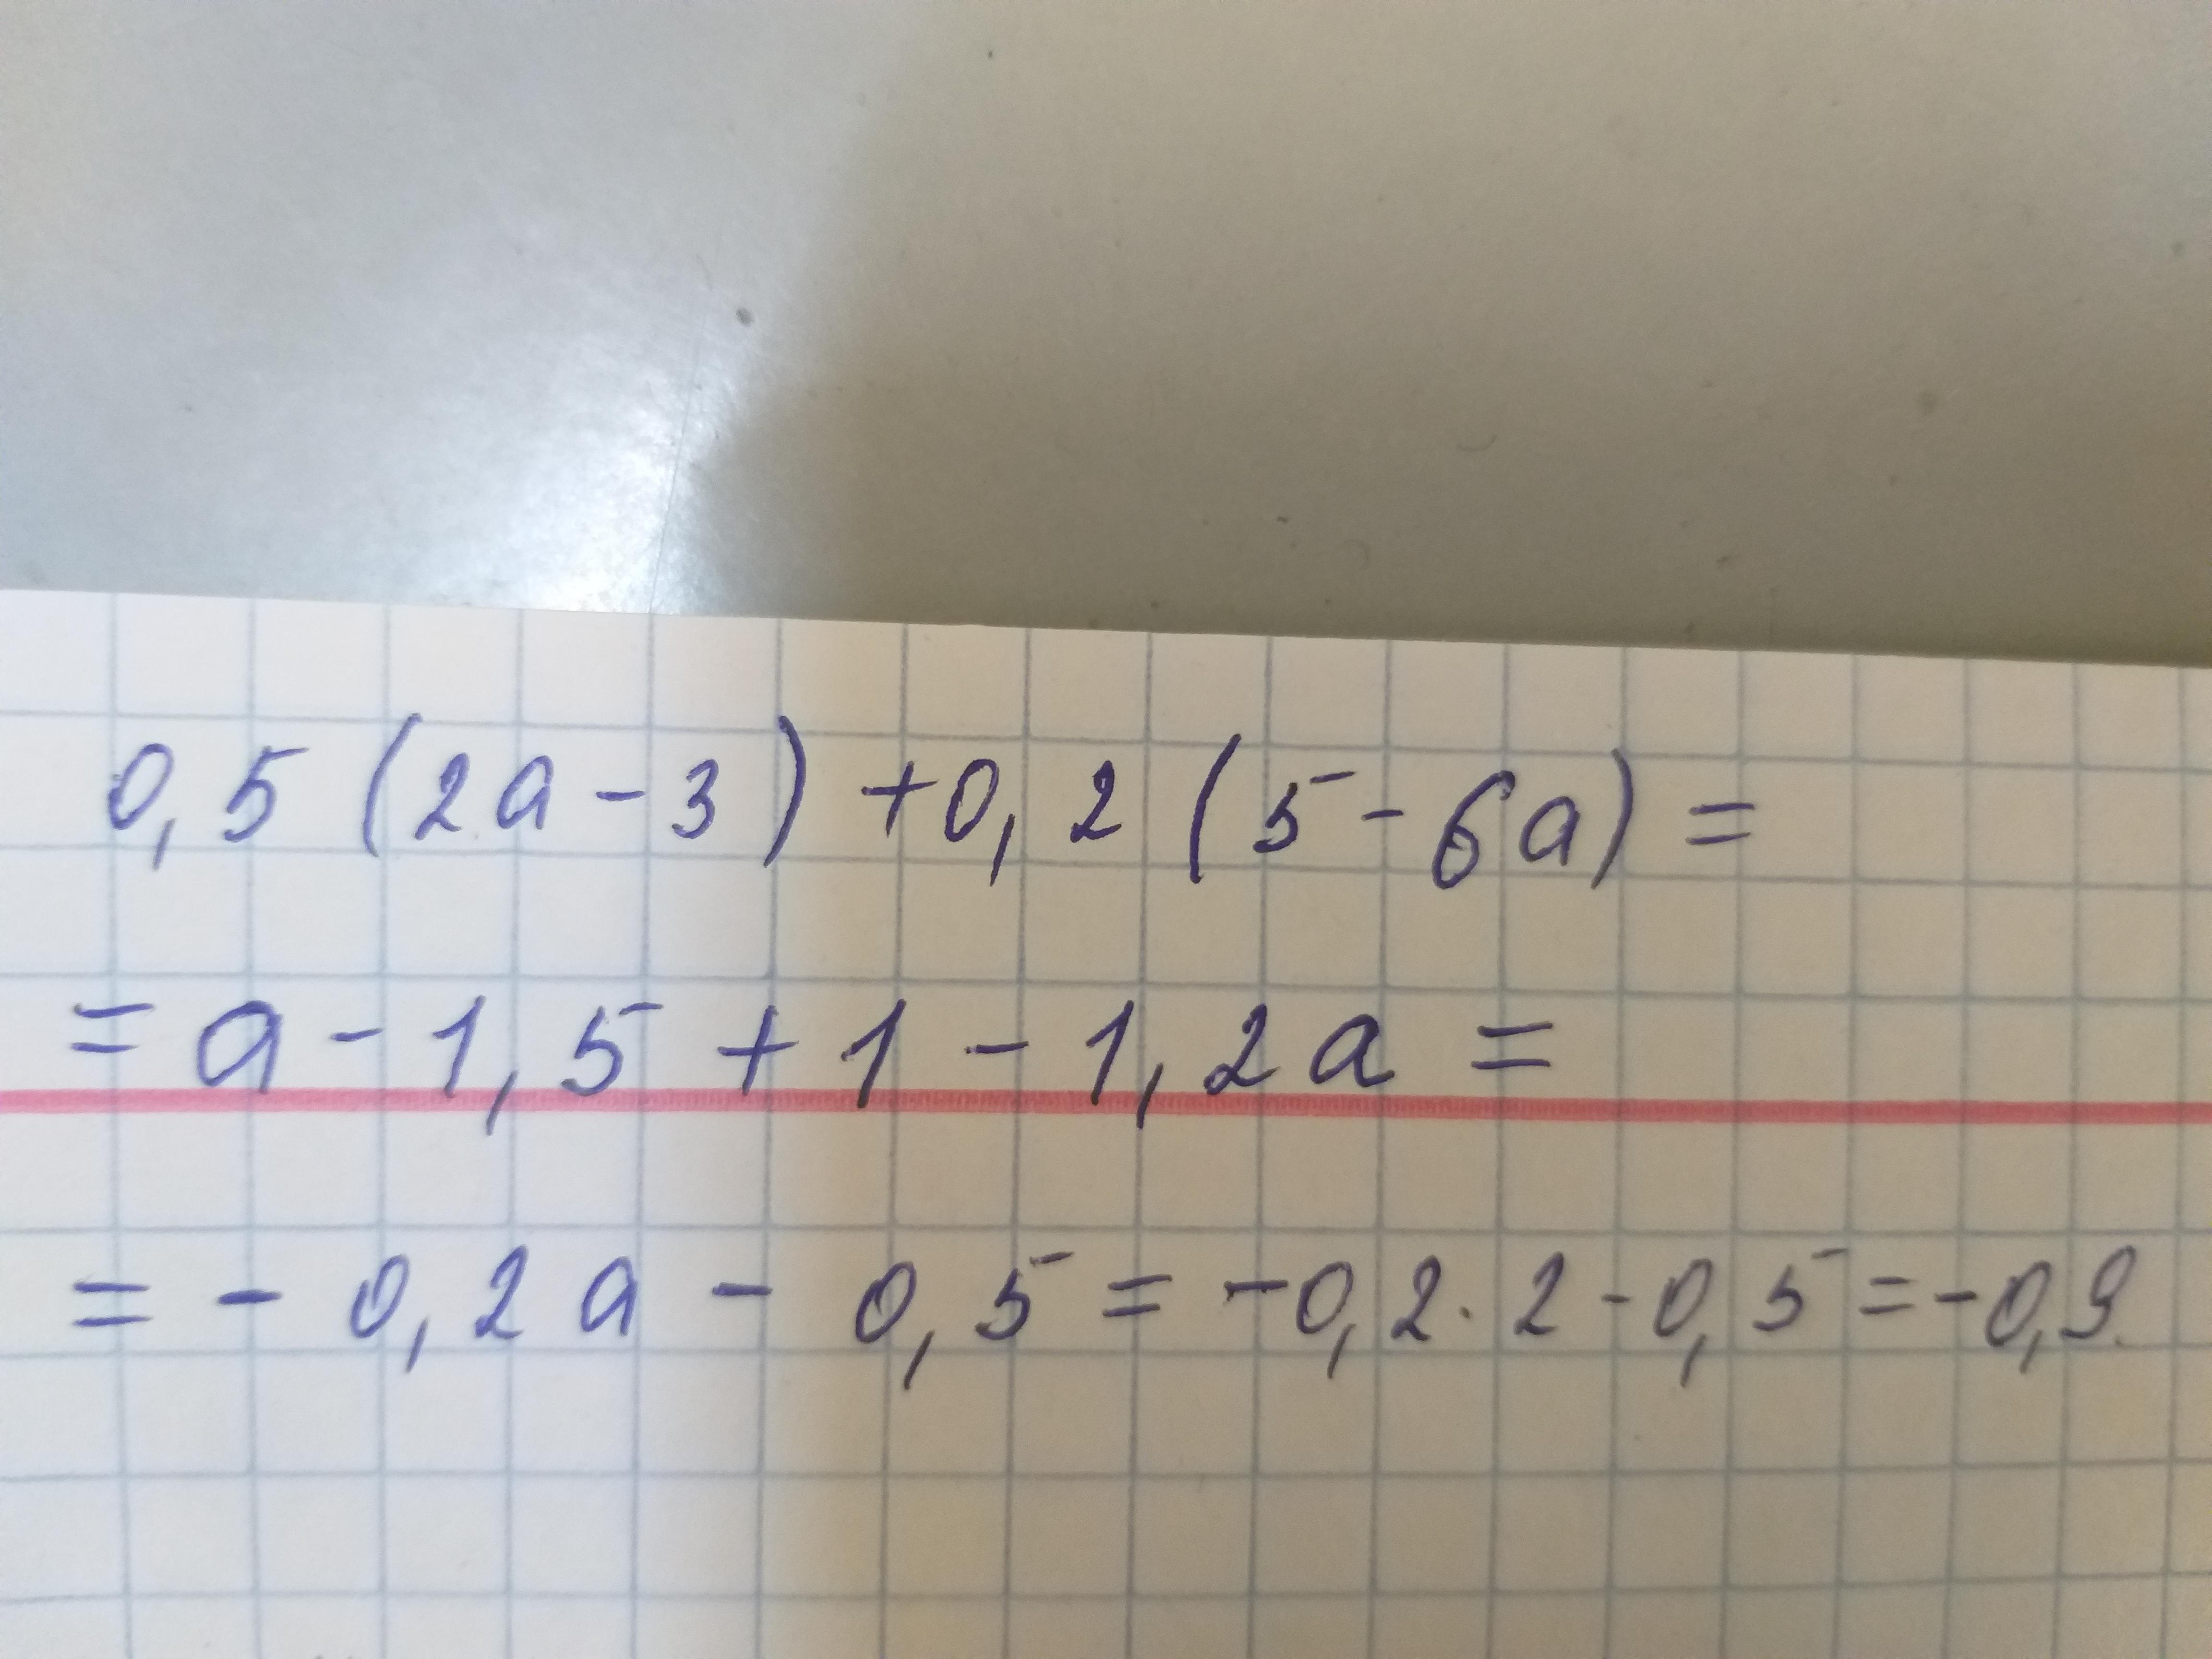 0,5(2a-3)+0,2(5-6a)=
=a-1,5+1-1,2a=
=-0,2a-0,5=-0,2·2-0,5=-0,9.